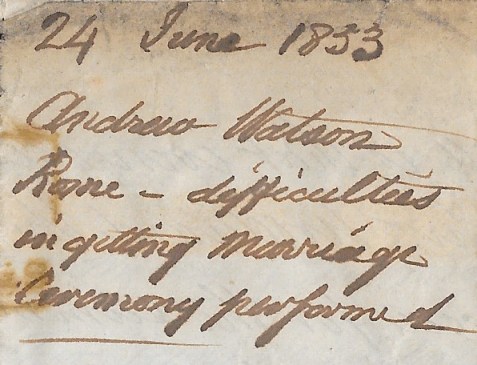 24 June 1833
Andrew Watson
Rome - difficulties
in getting Marriage
Ceremony performed